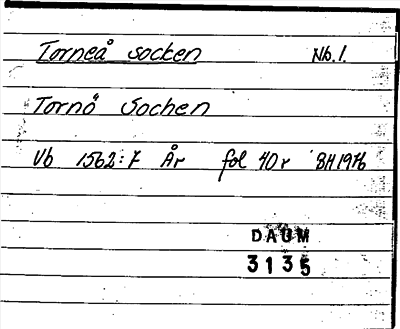 Torneå socken Nb. 1.
Tornö Sochen
Vb 1562:7 År fol 40 r BH 1976
DAUM
3135